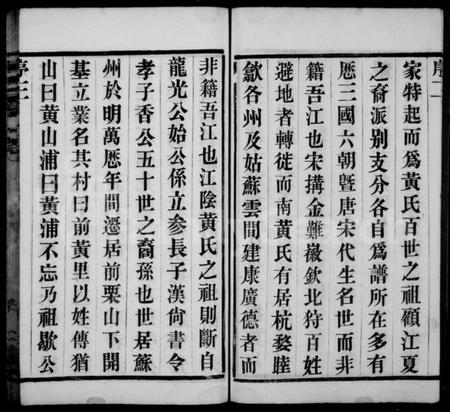 序二
家特起而爲黃氏百世之祖顧江夏
之裔派別支分各自爲譜所在多有
歷三國六朝曁唐宋代生名世而非
籍吾江也宋搆金難徽欽北狩百姓
避地者轉徙而南黃氏有居杭婺睦
歙各州及姑蘇雲間建康廣德者而
非籍吾江也江陰黃氏之祖則斷自
龍光公始公係立參長子漢尙書令
孝子香公五十世之裔孫也世居蘇
州於明萬厯年間遷居前栗山下開
基立業名其村曰前黃里以姓傳猶
山曰黃山浦曰黃浦不忘乃祖歇公
序三